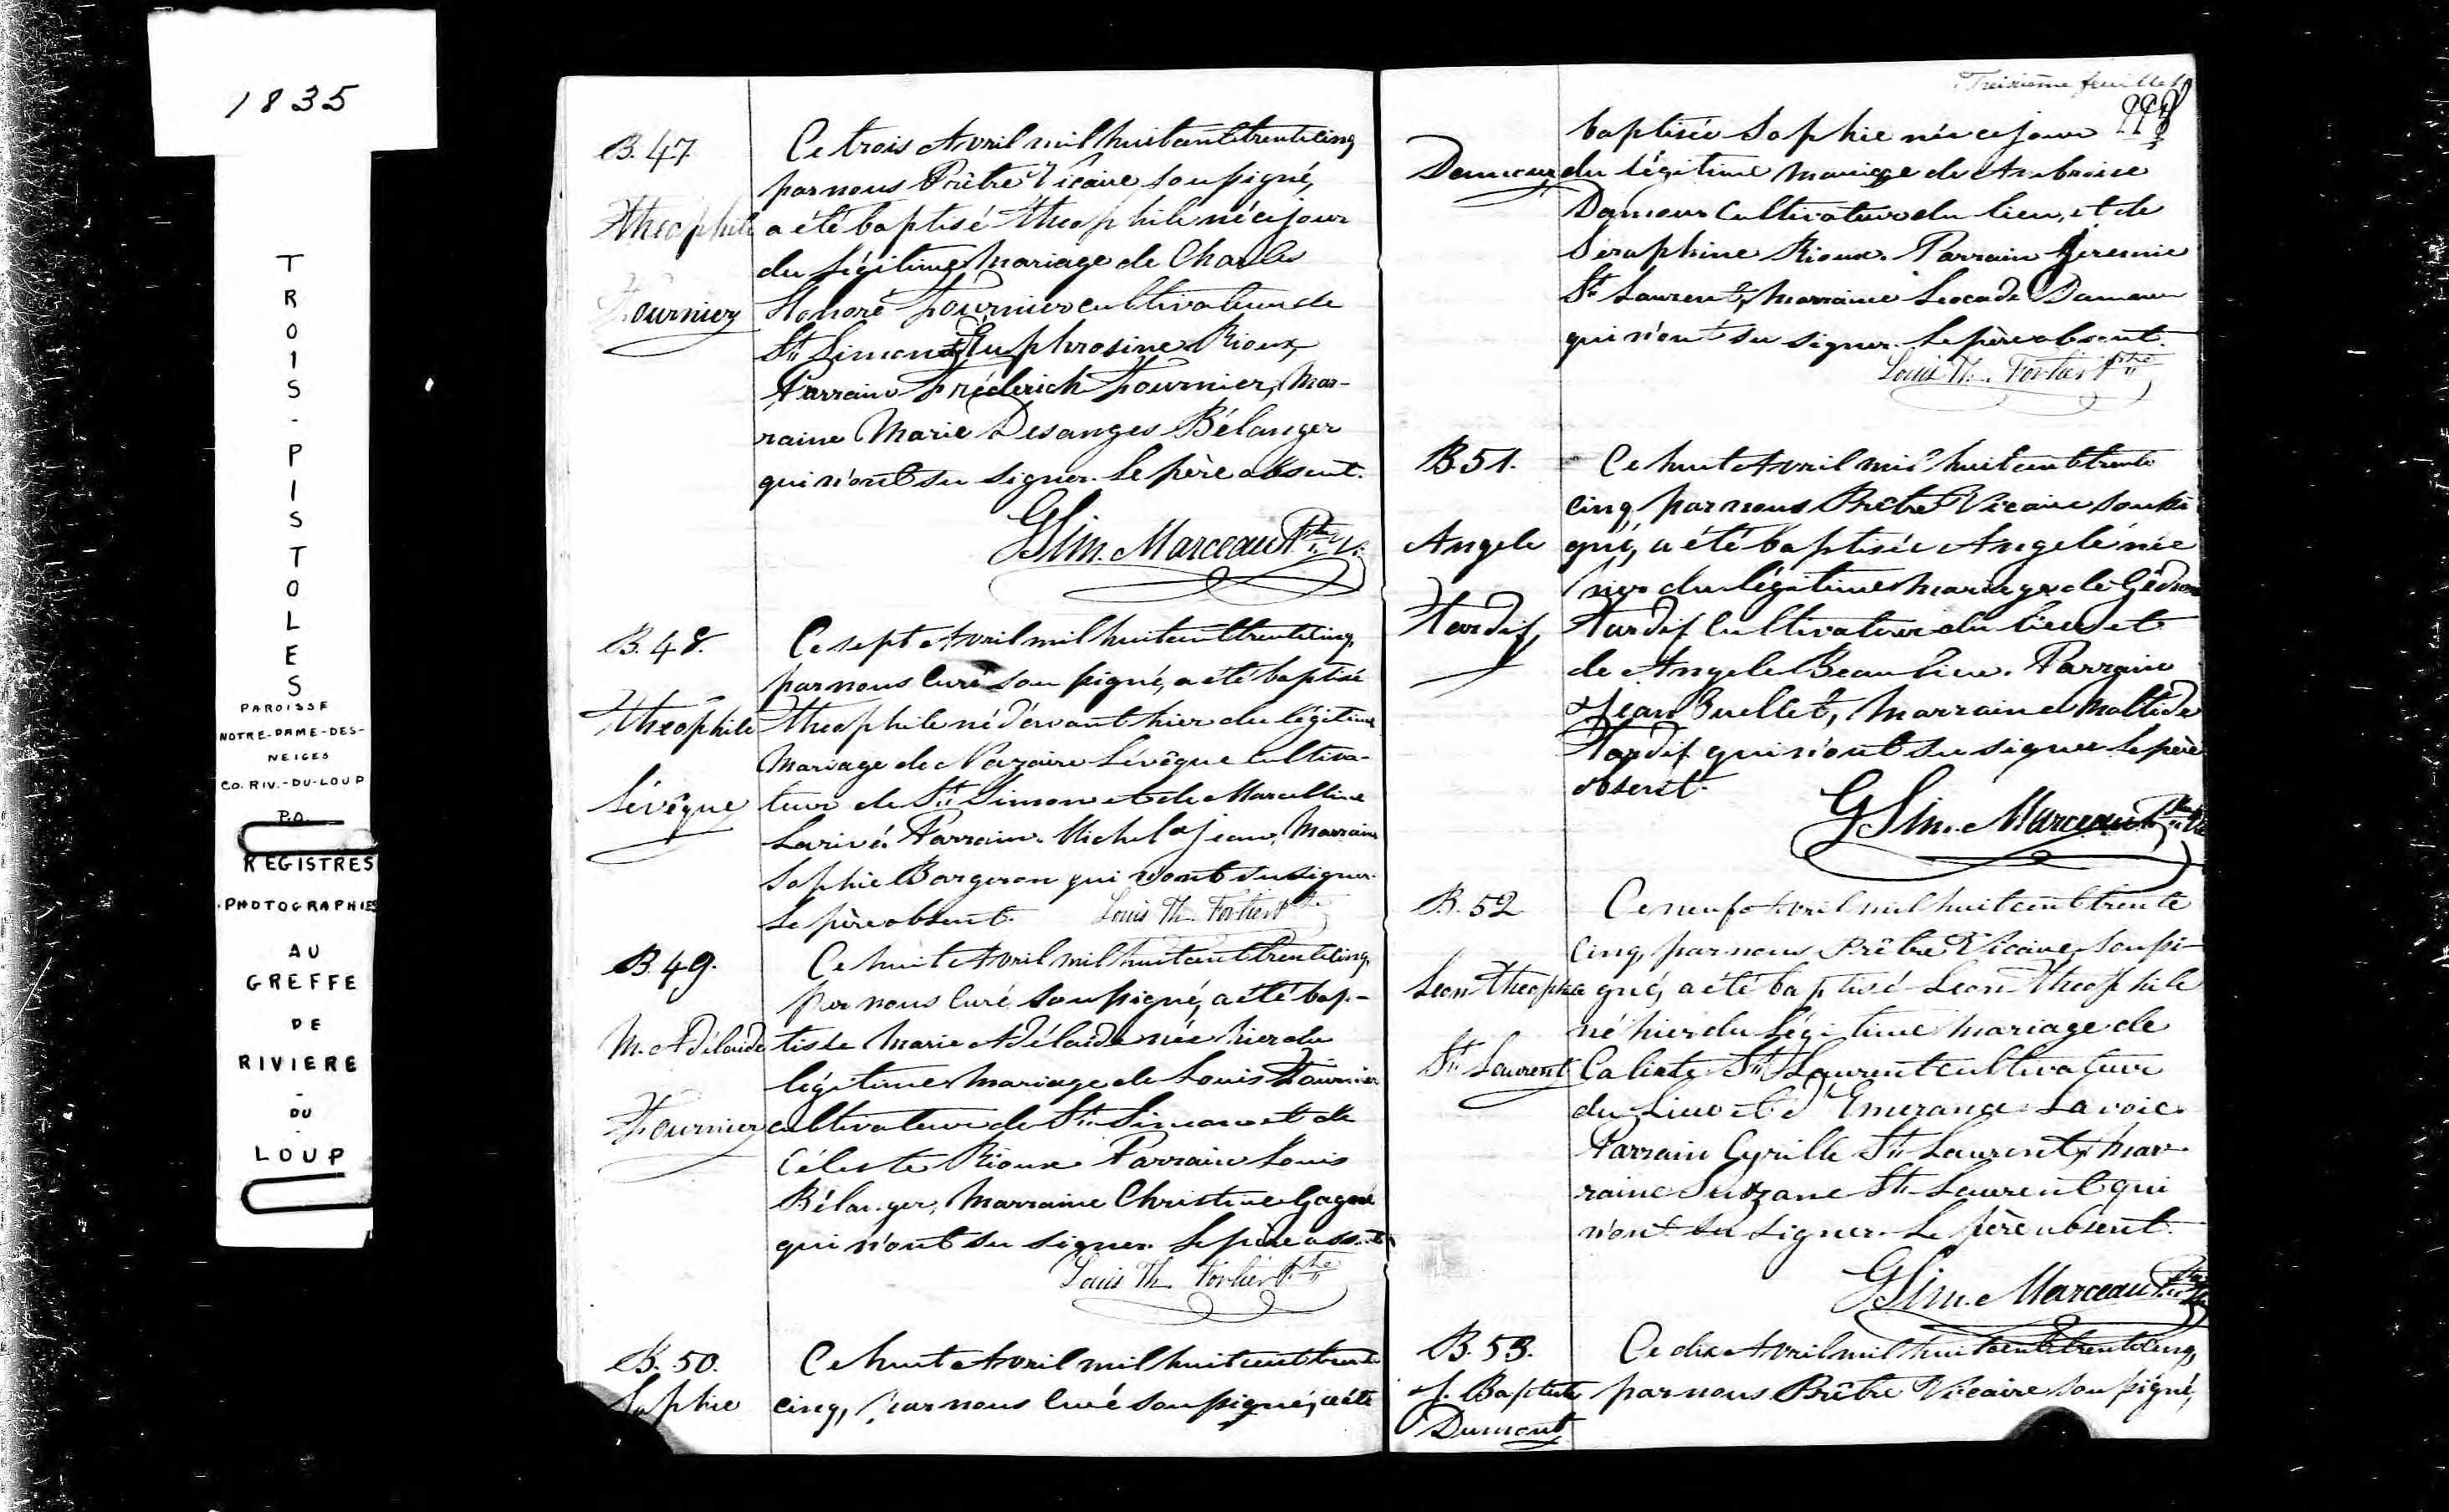 1835
TROIS-PISTOLES
PAROISSE
NOTRE-DAME-DES-
NEIGES
CO. RIV.-DU-LOUP
P.Q.
REGISTRES
PHOTOGRAPHIES
AU
GREFFE
DE
RIVIERE
-
DU
-
LOUP
B. 47.
Theophile
Fournier
Ce trois Avril mil huit cent trente cinq
par nous Prêtre Vicaire soussigné,
a été baptisé Theophile né ce jour
du légitime mariage de Charles
Honoré Fournier cultivateur de
St. Simon et Euphrosine Rioux
Parrain Fréderick Fournier, Mar-
raine Marie Desanges Bélanger
qui n'ont su signer. Le père absent.
GSim. Marceau Ptre. V.
B. 48.
Theophile
Lévêque
Ce sept Avril mil huit cent trente cinq
par nous Curé soussigné, a été baptisé
Theophile né d'avant hier du légitime
Mariage de Nazaire Lévêque cultiva-
teur de St. Simon et de Marcelline
Larivé. Parrain Michel Jean, Marraine
Sophie Bergeron qui n'ont su signer.
Le père absent. Louis Th. Fortier Ptre
B. 49.
M. Adélaide
Fournier
Ce huit Avril mil huit cent trente cinq
par nous Curé soussigné, a été bap-
tisée Marie Adélaide née hier du
légitime mariage de Louis Fournier
cultivateur de St. Simon et de
Céleste Rioux Parrain Louis
Bélanger, Marraine Christine Gagné
qui n'ont su signer. Le père
Louis Th. Fortier Ptre
B. 50.
Sophie
Ce huit Avril mil huit cent trente
cinq, par nous Curé soussigné, a été
Treizième feuillet
Damour
baptisée Sophie née ce jour
du légitime mariage de Ambroise
Damour Cultivateur du lieu, et de
Seraphine Rioux. Parrain Jeremie
St. Laurent, Marraine Leocade Damour
qui n'ont su signer. Le père absent.
Louis Th. Fortier Ptre
B. 51.
Angele
Tardif
Ce huit Avril mil huit cent trente
cinq, par nous Prêtre Vicaire soussi
gné, a été baptisée Angele née
hier du légitime mariage de Gédeon
Tardif Cultivateur du lieu et
de Angele Beaulieu. Parrain
Jean Ouellet, Marraine Matilde
Tardif qui n'ont su signer Le père
absent.
GSim. Marceau Ptre. Vic
B. 52
Leon Theophile
St. Laurent
Ce neuf Avril mil huit cent trente
cinq, par nous Prêtre Vicaire, soussi-
gné, a été baptisé Leon Theophile
né hier du légitime mariage de
Calixte St. Laurent cultivateur
du Lieu et d'Emerance Lavoie
Parrain Cyrille St. Laurent, Mar-
raine Suzane St. Laurent qui
n'ont su signer. Le père absent.
GSim. Marceau Ptre. Vic
B. 53.
J. Baptiste
Dumont
Ce dix Avril mil huit cent trente cinq,
par nous Prêtre Vicaire soussigné,